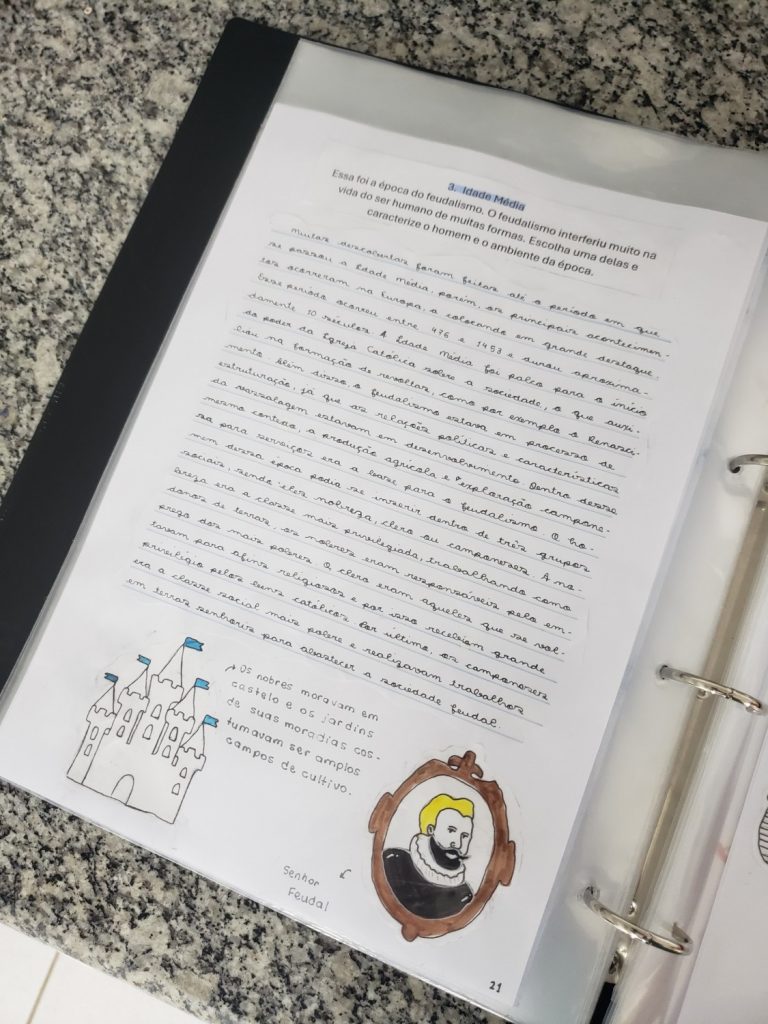 3. Idade Média
Essa foi a época do feudalismo. O feudalismo interferiu muito na
vida do ser humano de muitas formas. Escolha uma delas e
caracterize o homem e o ambiente da época.
Muitas descobertas foram feitas até o período em que
se passou a Idade média, porém, os principais acontecimen-
tos ocorreram na Europa, a colocando em grande destaque.
Esse período ocorreu entre 476 e 1453 e durou aproxima-
damente 10 séculos. A Idade Média foi palco para o início
do poder da Igreja Católica sobre a sociedade, o que auxi-
liou na formação de revoltas, como por exemplo o Renasci-
mento. Além disso, o feudalismo estava em processo de
estruturação, já que as relações políticas e características
da vassalagem estavam em desenvolvimento. Dentro desse
mesmo contexto, a produção agrícola e exploração campone-
sa para serviços era a base para o feudalismo. O ho-
mem dessa época podia se inserir dentro de três grupos
sociais, sendo eles nobreza, clero ou camponeses. A no-
breza era a classe mais privilegiada, trabalhando como
donos de terras, os nobres eram responsáveis pelo em-
prego dos mais pobres. O clero eram aqueles que se vol-
tavam para afins religiosos e por isso recebiam grande
privilégio pelos bens católicos. Por último, os camponeses
era a classe social mais pobre e realizavam trabalhos
em terras senhoris para abastecer a sociedade feudal.
Os nobres moravam em
castelo e os jardins
de suas moradias cos-
tumavam ser amplos
campos de cultivo.
Senhor
Feudal
21